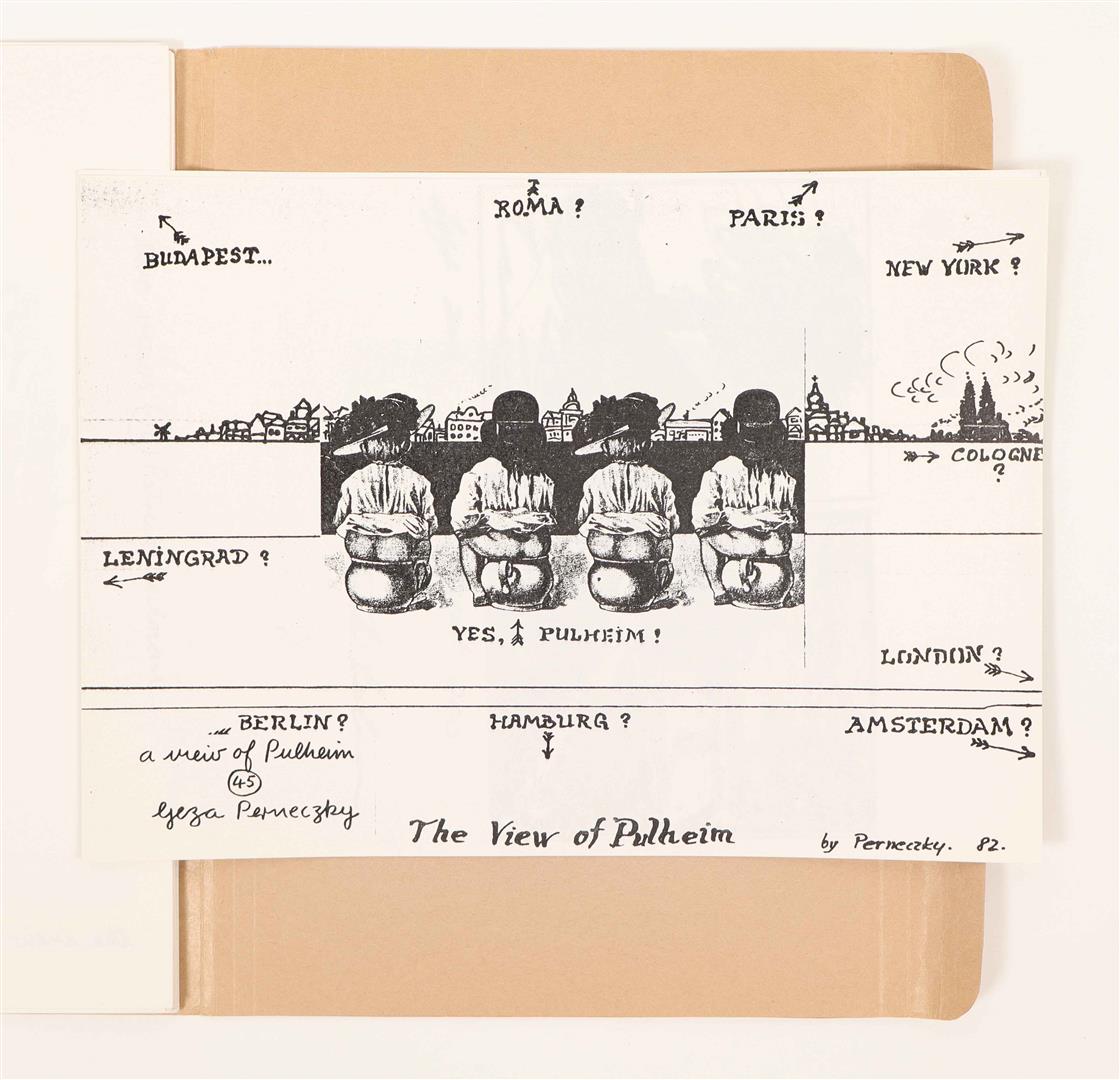 ROMA ?
PARIS ?
BUDAPEST...
NEW YORK ?
COLOGNE
?
LENINGRAD ?
YES, PULHEIM !
LONDON ?
... BERLIN ?
HAMBURG ?
AMSTERDAM ?
a view of Pulheim
45
Geza Perneczky
The View of Pulheim
by Perneczky. 82.